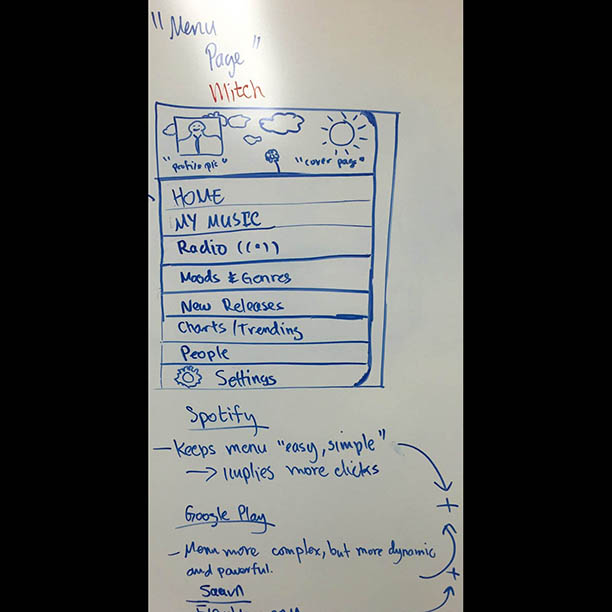 "Menu
Page"
Mitch
"profile pic"
"cover page"
HOME
MY MUSIC
Radio ((•))
Moods & Genres
New Releases
Charts/Trending
People
Settings
Spotify
- Keeps menu "easy, simple"
→ implies more clicks
+
Google Play
- Menu more complex, but more dynamic
and powerful.
+
Saavn